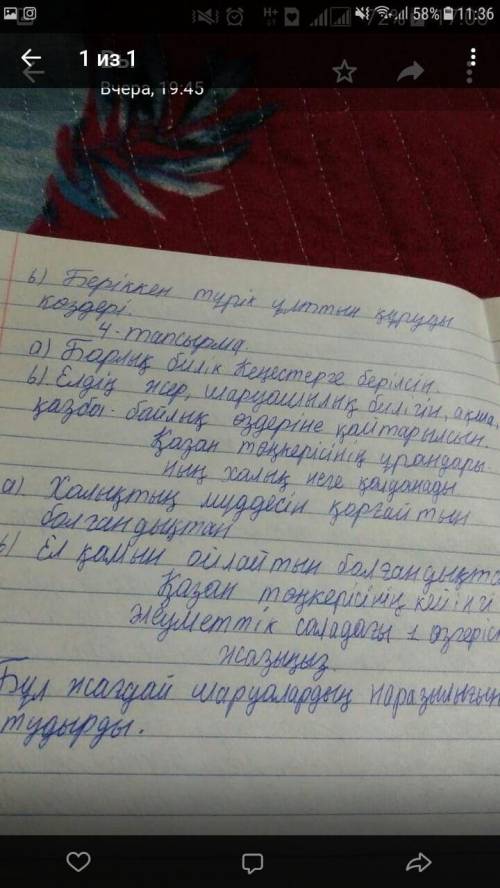 58% 11:36
1 из 1
Вчера, 19:45
б) Беріккен түрік ұлттын құруды
көздері.
4-тапсырма.
а) Барлық билік Кеңестерге берілсін.
б) Елдің жер, шаруашылық билігін, ақша,
қазба-байлық өздеріне қайтарылсын
Қазан төңкерісінің ұрандары-
ның халық неге қолданады
а) Халықтың мүддесін қорғайтын
болғандықтан
б) Ел қамын ойлайтын болғандықта
Қазан төңкерісінің кейінгі
Әлеуметтік саладағы 1 өзгеріс
жазыңыз.
Бұл жағдай шаруалардың наразылығын
тудырды.